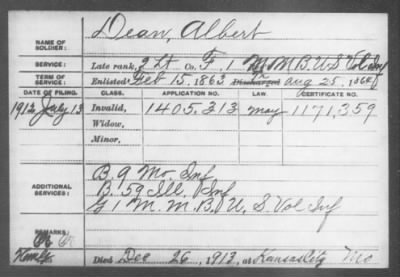 NAME OF SOLDIER: Dean, Albert
SERVICE: Late rank, 2 Lt Co. F, 1 M M B U S Vol Inf
TERM OF SERVICE: Enlisted Feb 15, 1863 Discharged Aug 25, 1864
DATE OF FILING. CLASS. APPLICATION NO. LAW. CERTIFICATE NO.
1912 July 13 Invalid, 1405.313 May 1171,359
Widow,
Minor,
ADDITIONAL SERVICES:
B. 9 Mo. Inf
B. 59 Ill. Inf
G 1 M. M. B. U. S. Vol Inf
REMARKS:
Died Dec 26, 1913, at Kansas City Mo